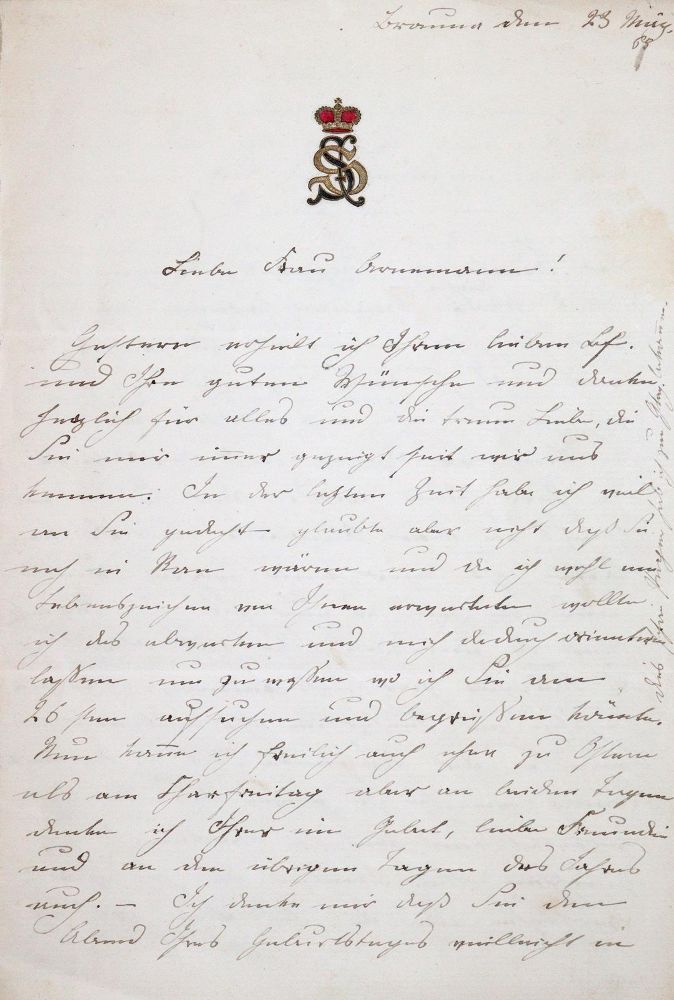 Brauna den 23 März.
65
Liebe Frau Arnemann!
Gestern erhielt ich Ihren lieben Bf.
und Ihre guten Wünsche und danke
herzlich für alles und die treue Liebe, die
Sie mir immer gezeigt seit wir uns
kennen. In der letzten Zeit habe ich viel
an Sie gedacht glaubte aber nicht daß Sie
noch in wären und da ich wohl ein
Lebenszeichen von Ihnen erwartete wollte
ich das abwarten und mich dadurch orientiren
lassen um zu wissen wo ich Sie am
26 sten aufsuchen und begrüßen könnte.
Nun kann ich freilich auch eher zu Ostern
als am Charfreitag aber an beiden Tagen
denke ich Ihrer im Gebet, liebe Freundin
und an den übrigen Tagen des Jahres
auch. – Ich denke mir daß Sie den
Abend Ihres Geburtstages vielleicht in